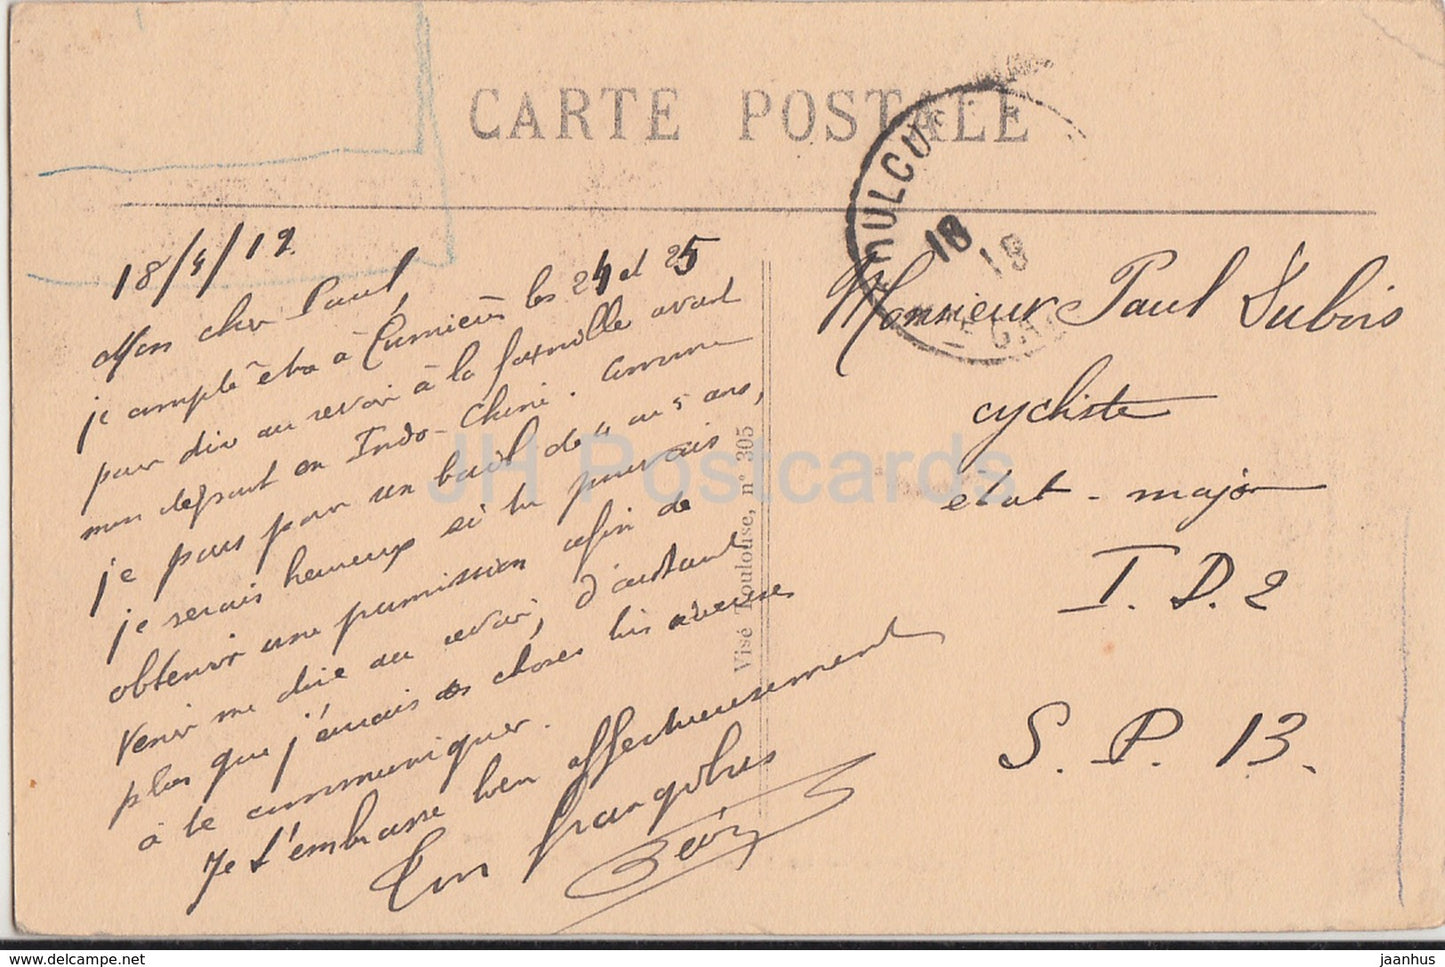 CARTE POSTALE
18/4/19
Mon cher Paul,
je compte etre à Cumières les 24 et 25
pour dire au revoir à la famille avant
mon depart en Indo-Chine. Comme
je pars pour un bail de 4 ou 5 ans,
je serais heureux si tu pouvais
obtenir une permission afin de
venir me dire au revoir, d'autant
plus que j'aurais des choses très sérieuses
à te communiquer.
Je t'embrasse bien affectueusement
Ton
Visé Toulouse, n° 305
18
19
Monsieur Paul Dubois
cycliste
état-major
I.D.2
S.P. 13.
JH Postcards
jaanhus